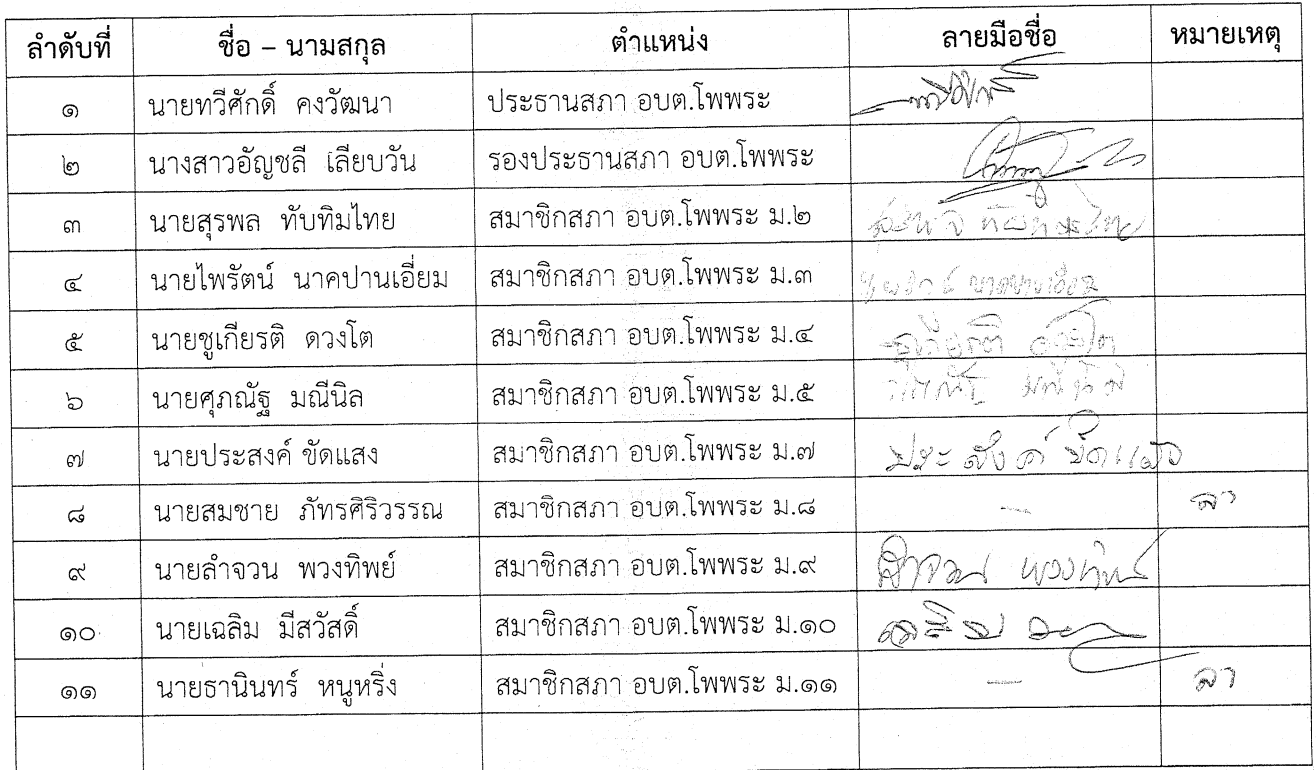 ลำดับที่ ชื่อ – นามสกุล ตำแหน่ง ลายมือชื่อ หมายเหตุ
๑ นายทวีศักดิ์ คงวัฒนา ประธานสภา อบต.โพพระ ทวีศักดิ์
๒ นางสาวอัญชลี เลียบวัน รองประธานสภา อบต.โพพระ
๓ นายสุรพล ทับทิมไทย สมาชิกสภา อบต.โพพระ ม.๒ สุรพล ทับทิมไทย
๔ นายไพรัตน์ นาคปานเอี่ยม สมาชิกสภา อบต.โพพระ ม.๓ ไพรัตน์ นาคปานเอี่ยม
๕ นายชูเกียรติ ดวงโต สมาชิกสภา อบต.โพพระ ม.๔ ชูเกียรติ ดวงโต
๖ นายศุภณัฐ มณีนิล สมาชิกสภา อบต.โพพระ ม.๕ ศุภณัฐ มณีนิล
๗ นายประสงค์ ขัดแสง สมาชิกสภา อบต.โพพระ ม.๗ ประสงค์ ขัดแสง
๘ นายสมชาย ภัทรศิริวรรณ สมาชิกสภา อบต.โพพระ ม.๘ – ลา
๙ นายลำจวน พวงทิพย์ สมาชิกสภา อบต.โพพระ ม.๙ ลำจวน พวงทิพย์
๑๐ นายเฉลิม มีสวัสดิ์ สมาชิกสภา อบต.โพพระ ม.๑๐ เฉลิม
๑๑ นายธานินทร์ หนูหริ่ง สมาชิกสภา อบต.โพพระ ม.๑๑ – ลา